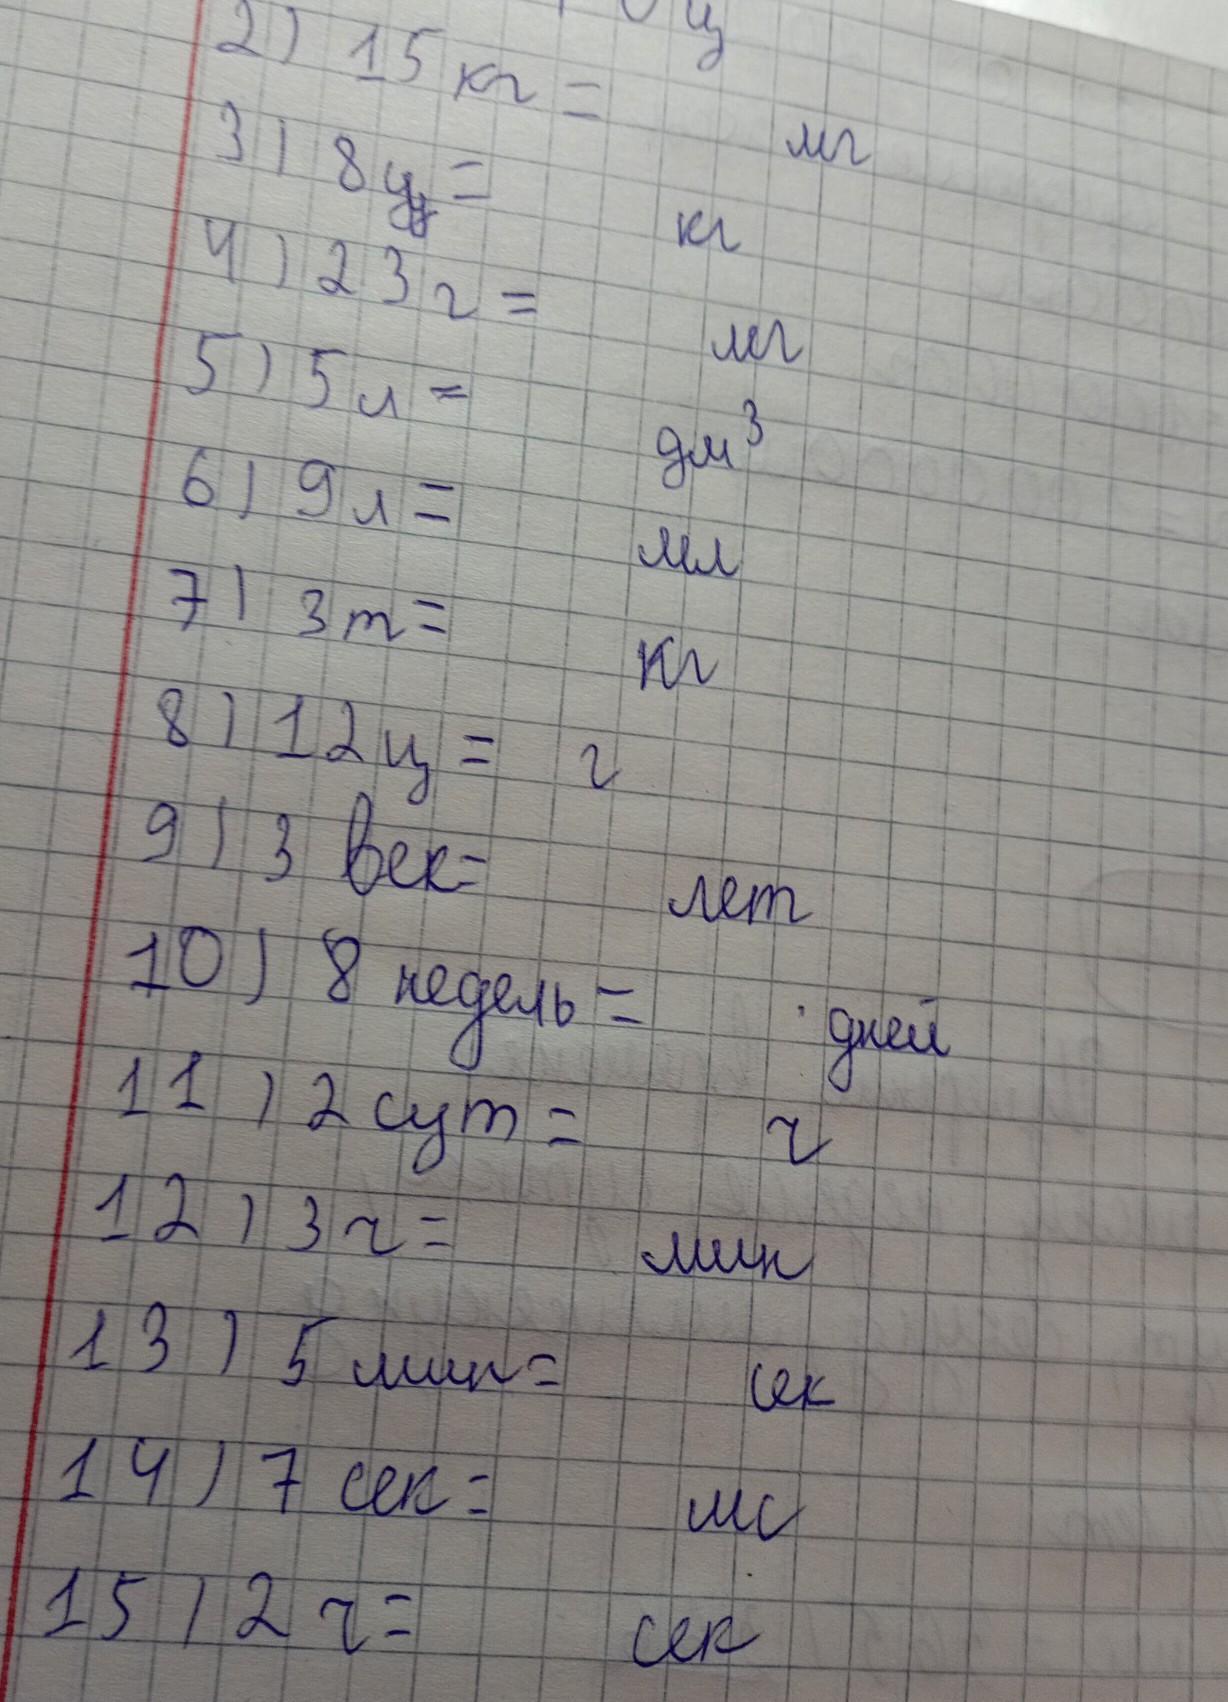 ц
2) 15 кг = мг
3) 8 ц = кг
4) 23 г = мг
5) 5 л = дм³
6) 9 л = мл
7) 3 т = кг
8) 12 ц = г
9) 3 век = лет
10) 8 недель = дней
11) 2 сут = ч
12) 3 ч = мин
13) 5 мин = сек
14) 7 сек = мс
15) 2 ч = сек